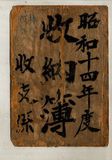 昭和十四年度
収納簿
収支係